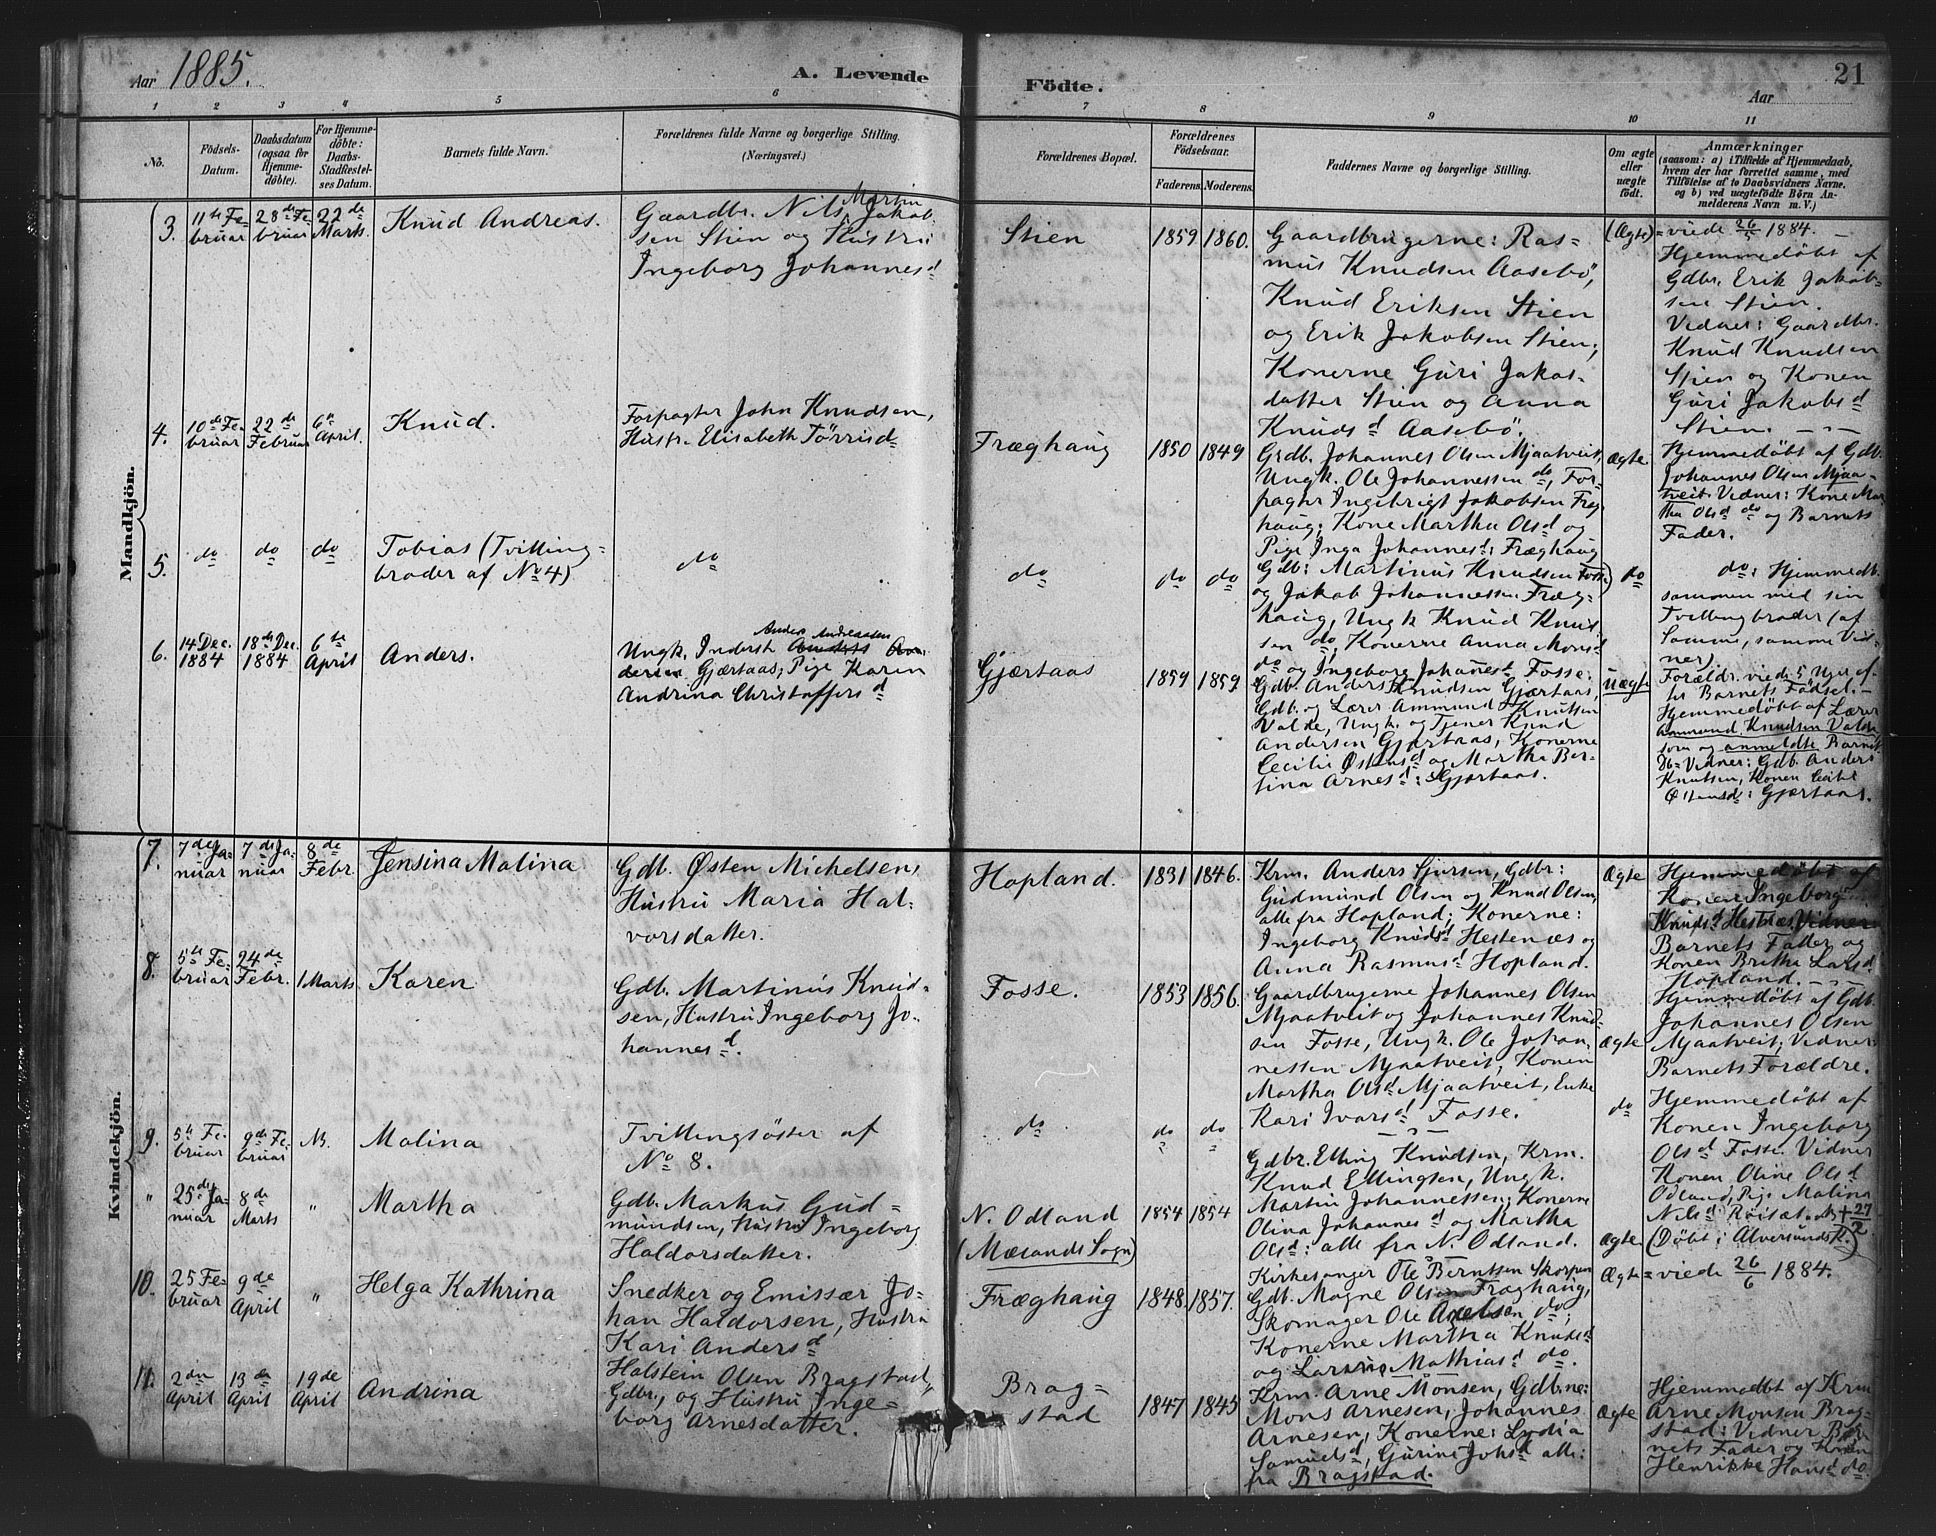 Aar 1885.
A. Levende
Födte.
21
Aar
1 2 3 4 5 6 7 8 9 10 11
No.
Födsels-
Datum.
Daabsdatum
(ogsaa for
Hjemme-
döbte).
For Hjemme-
döbte:
Daabs-
Stadfestel-
ses Datum.
Barnets fulde Navn.
Forældrenes fulde Navne og borgerlige Stilling.
(Næringsvei.)
Forældrenes Bopæl.
Forældrenes
Födselsaar.
Faderens.
Moderens.
Faddernes Navne og borgerlige Stilling.
Om ægte
eller
uægte
födt.
Anmærkninger
(saasom: a) i Tilfælde af Hjemmedaab,
hvem der har forrettet samme, med
Tilföielse af to Daabsvidners Navne.
og b) ved uægtefödte Börn An-
melderens Navn m. V.)
Mandkjön.
3.
11te Fe-
bruar
28de Fe
bruar
22de
Marts.
Knud Andreas.
Martin
Gaardbr. Nils Jakob
sen Stien og Hustru
Ingeborg Johannesd
Stien
1859
1860.
Gaardbrugerne: Ras-
mus Knudsen Aasebö,
Knud Eriksen Stien
og Erik Jakobsen Stien;
Konerne Guri Jakos-
datter Stien og Anna
Knudsd Aasebö.
(Ægte)
= viede 26/5 1884. —
Hjemmedöbt af
Gdbr. Erik Jakob-
sen Stien.
Vidner: Gaardbr.
Knud Knudsen
Stien og Konen
Guri Jakobsd
Stien.
4.
10de Fe-
bruar
22de
Februar
6te
April.
Knud.
Forpagter John Knudsen,
Hustr. Elisabeth Törrisd
Fræghaug
1850
1849
Grdb. Johannes Olsen Mjaatveit,
Ungk. Ole Johannessen do, For-
pagter Ingebrigt Jakobsen Freg
haug; Kone Martha Olsd og
Pige Inga Johannesd: Fræghaug
ægte
Hjemmedöbt af Gdb.
Johannes Olsen Mjaa-
tveit. Vidner: Kone Mar
tha Olsd do og Barnets
Fader.
5.
do
do
do
Tobias (Tvilling-
broder af No 4)
do
do
do
do
Gdb: Martinus Knudsen Fosse)
og Jakob Johannessen Fræg-
haug, Ungk Knud Knud
sen do, Konerne Anna Monsd
do og Ingeborg Johanesd Fosse.
do
do: Hjemmedb.
sammen med sin
Tvillingbroder (af
Samme, samme Vid-
ner)
6.
14 Dec.
1884
18de Dec.
1884
6te
April
Anders.
Anders Andreassen
Ungk. Inderst
Gjærtaas; Pige Karen
Andrina Christoffersd
Gjærtaas
1859
1859
Gdb. Anders Knudsen Gjærtaas,
Gdb. og Lærer Ammund Knutsen
Valde, Ungk. og Tjener Knud
Andersen Gjærtaas, Konerne
Cecilie Østensd og Martha Ber-
tina Arnesd: Gjærtaas.
uægte
Forældr. viede 5 Uger ef-
ter Barnets Födsel. —
Hjemmedöbt af Lærer
Ammund Knudsen Valde,
som og anmeldte Barnet
Vidner: Gdb. Anders
Knutsen, Konen Cecilie
Østensd: Gjærtaas.
Kvindekjön.
7.
7de Ja-
nuar
7de Ja-
nuar
8de
Febr.
Jensina Malina
Gdb. Østen Michelsen,
Hustru Maria Hal-
vorsdatter.
Hopland.
1831
1846.
Krm. Anders Sjursen, Gdbr:
Gudmund Olsen og Knud Olsen,
alle fra Hopland; Konerne:
Ingeborg Knudsd Hestenæs og
Anna Rasmusd Hopland.
Ægte
Hjemmedöbt af
Konen Ingeborg
Knudsd Hestnæs. Vidner
Barnets Fader og
Konen Brithe Larsd
Hopland.
8.
5te Fe-
bruar
24de
Febr.
1 Marts
Karen
Gdb. Martinus Knud-
sen, Hustru Ingeborg Jo-
hannesd.
Fosse.
1853
1856.
Gaardbrugerne Johannes Olsen
Mjaatveit og Johannes Knud-
sen Fosse, Ungk. Ole Johan-
nessen Mjaatveit, Konen
Martha Olsd Mjaatveit, Enke
Kari Ivarsd Fosse.
Ægte
Hjemmedöbt af Gdb.
Johannes Olsen
Mjaatveit; Vidner
Barnets Forældre.
9.
5te Fe-
bruar
9de Fe-
bruar
NB.
Malina
Tvillingsöster af
No 8.
do
do
do
Gdbr. Elling Knudsen, Krm.
Knud Ellingsen, Ungk.
do
Hjemmedöbt af
Konen Ingeborg
Olsd Fosse. Vidner
Konen Oline Olsd
Odland, Pige Malina
Nilsd + 27/2
"
25de Ja-
nuar
8de
Marts
"
Martha
Gdb. Markus Gud-
mundsen, Hustru Ingeborg
Haldorsdatter.
N. Odland
(Mæland Sogn)
1854
1854
Martin Johannessen; Konerne
Olina Johannesd og Martha
Olsd: alle fra N. Odland.
Ægte
(Döbt i Alversunds K.)
10.
25 Fe-
bruar
9de
April
"
Helga Kathrina
Snedker og Emissær Jo-
han Haldorsen, Hustru
Kari Andersd
Fræghaug
1848.
1857.
Kirkesanger Ole Berntsen Skorpen
Gdb. Mogne Olsen Fræghaug,
Skomager Ole Axelsen do,
Konerne Martha Knudsd
og Mathiasd do.
Ægte
= viede 26/6 1884.
11.
2den
April
13de
April
19de
April
Andrina
Holstein Olsen Bragstad,
Gdbr., og Hustru Inge-
borg Arnesdatter.
Brag-
stad
1847
1845
Krm. Arne Monsen, Gdb:ne:
Mons Arnesen, Johannes
Arnesen, Konerne: Lydia
Samuelsd, Gurine Johsd alle:
fra Bragstad.
Ægte
Hjemmedöbt af Krm
Arne Monsen Brag-
stad: Vidner Bar-
nets Fader og Konen
Henrikke Hansd do.